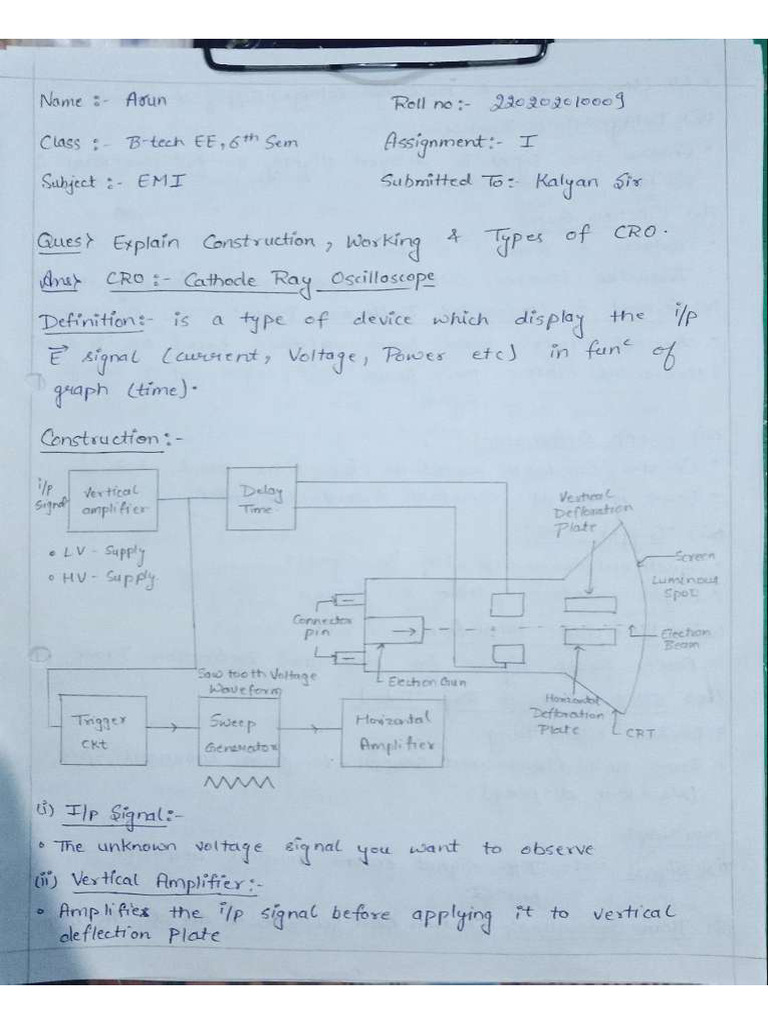 Name :- Arun
Roll no :- 220202010009
Class :- B-tech EE, 6th Sem
Assignment :- I
Subject :- EMI
Submitted To :- Kalyan Sir
Ques> Explain Construction, Working & Types of CRO.
Ans> CRO :- Cathode Ray Oscilloscope
Definition :- is a type of device which display the i/p
E signal (current, Voltage, Power etc) in func of
graph (time).
Construction :-
i/p
Signal
Vertical
amplifier
Delay
Time
• LV - Supply
• HV - Supply
Vertical
Defloration
Plate
Screen
Luminous
Spot
Connector
pin
Electron
Beam
Electron Gun
Saw tooth Voltage
Waveform
Trigger
CKt
Sweep
Generator
Horizontal
Amplifier
Horizontal
Defloration
Plate
CRT
(i) I/p Signal :-
• The unknown voltage signal you want to observe
(ii) Vertical Amplifier :-
• Amplifies the i/p signal before applying it to vertical
deflection Plate